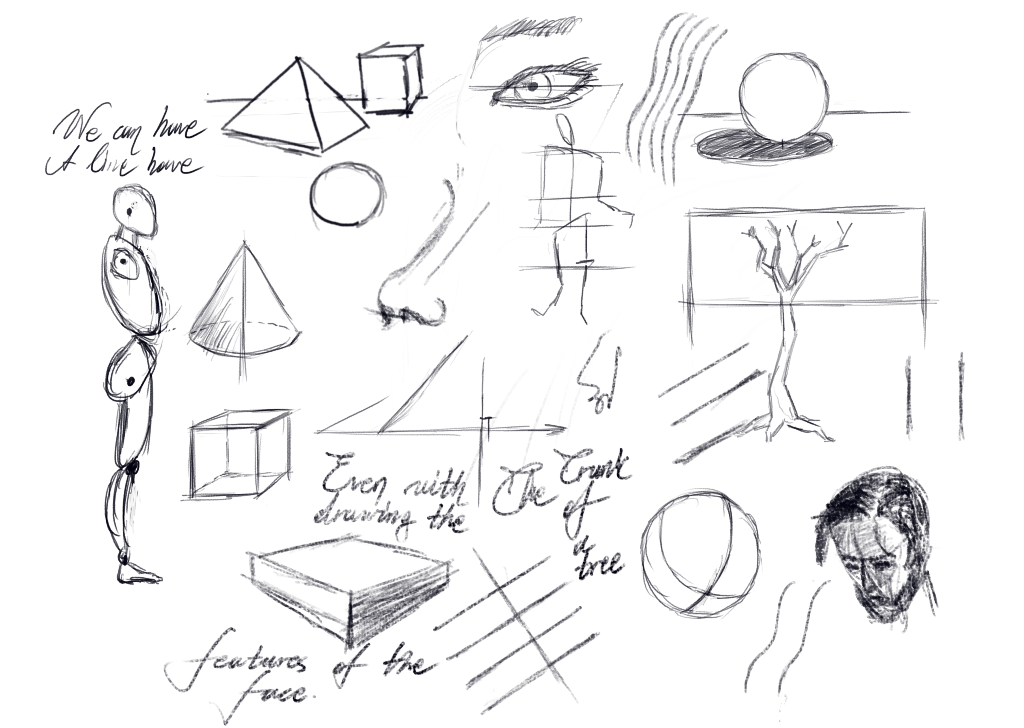 We can have
A line have
Even with
drawing the
The Trunk
of
a
tree
features of the
face.